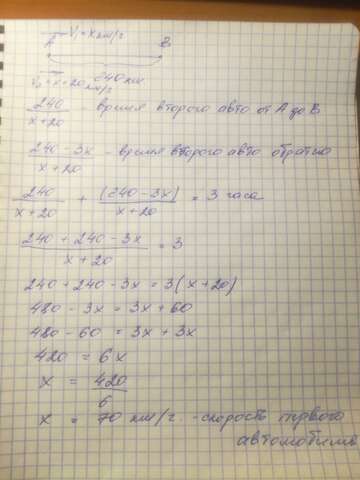 V₁ = x км/г
A B
V₂ = x + 20 км/г 240 км
240/(x+20) - время второго авто от A до B
(240 - 3x)/(x+20) - время второго авто обратно
240/(x+20) + (240 - 3x)/(x+20) = 3 часа
(240 + 240 - 3x)/(x+20) = 3
240 + 240 - 3x = 3(x+20)
480 - 3x = 3x + 60
480 - 60 = 3x + 3x
420 = 6x
x = 420/6
x = 70 км/г. - скорость первого
автомобиля